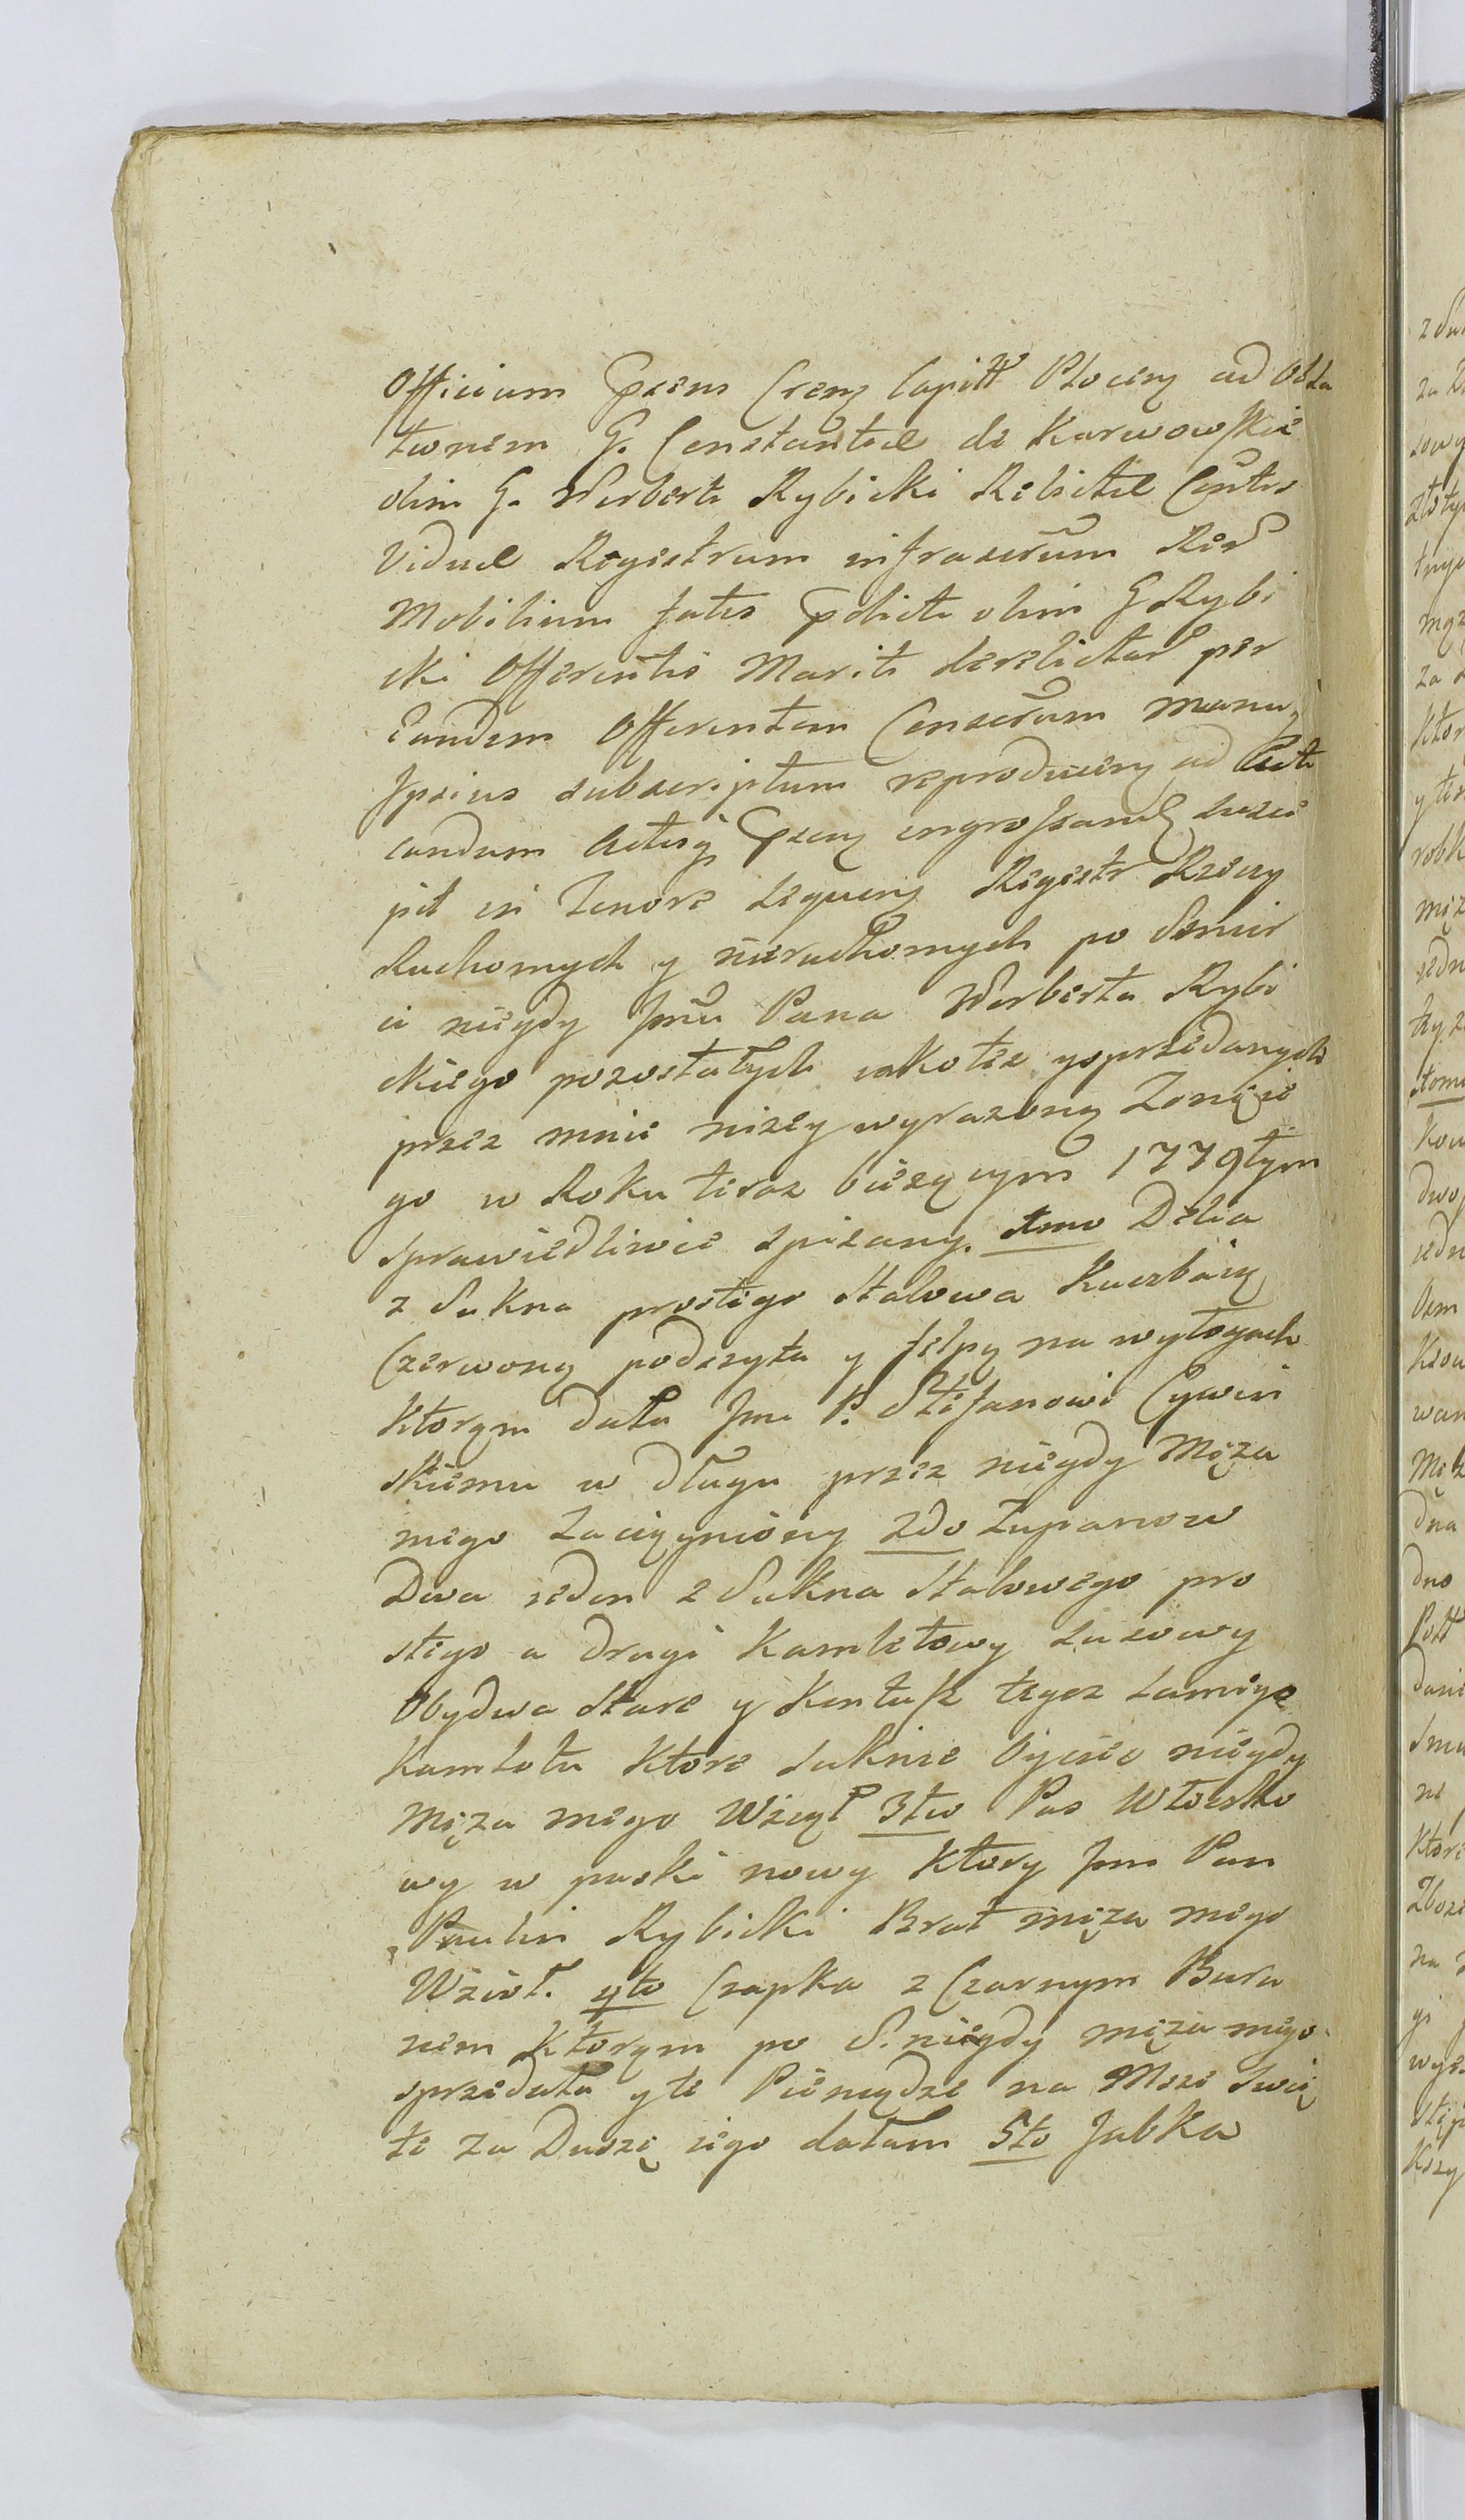 Officium Præns Crens Capitt Ploceng ad Obla
tionem G. Constantiæ de Karwowskie
olim G. Norberti Rybicki Relictæ Conthois
Viduæ Registrum infrascrum Rerd
Mobilium fatis prdicti olim G Rybi
cki Offerentis Mariti derelictard per
Eandem Offerentem Conscrum manuq
Ipsius subscriptum reproducens ad Acti
candum Actisq Præng ingrossand susce
pit in Tenore sequeng Regestr Rzeczy
Ruchomych y nieruchomych po Smier
ci niegdy Jmci Pana Norberta Rybi
ckiego pozostałych iako też y sprzedanych
przez mnie niżey wyrazoną Zonę ie
go w Roku teraz bieżącym 1779tym
sprawiedliwie spisany. 1mo Delia
z Sukna prostego Stalowa Kuczbaią
Czerwoną podszyta y felpą na wyłogach
ktorąm dała Jmci P. Stefanowi Cywiń
skiemu w długu przez niegdy Męża
mego zaciągniony 2do Zupanow
Dwa ieden z Sukna Stalowego pro
stego a drugi Kamletowy Zuzowy
Obydwa Stare y Kontusz tegoz samego
Kamlotu ktore suknie Oyciec niegdy
Męża mego Wziął 3tio Pas Włoczko
wy w paski nowy ktory Jmci Pan
Paulin Rybicki Brat męża mego
Wziół. 4to Czapka z Czarnym Bara
nem ktorąm po S. niegdy męża mego
sprzedała y te Pieniądze na Msze Swię
te za Duszę iego dałam 5to Jubka